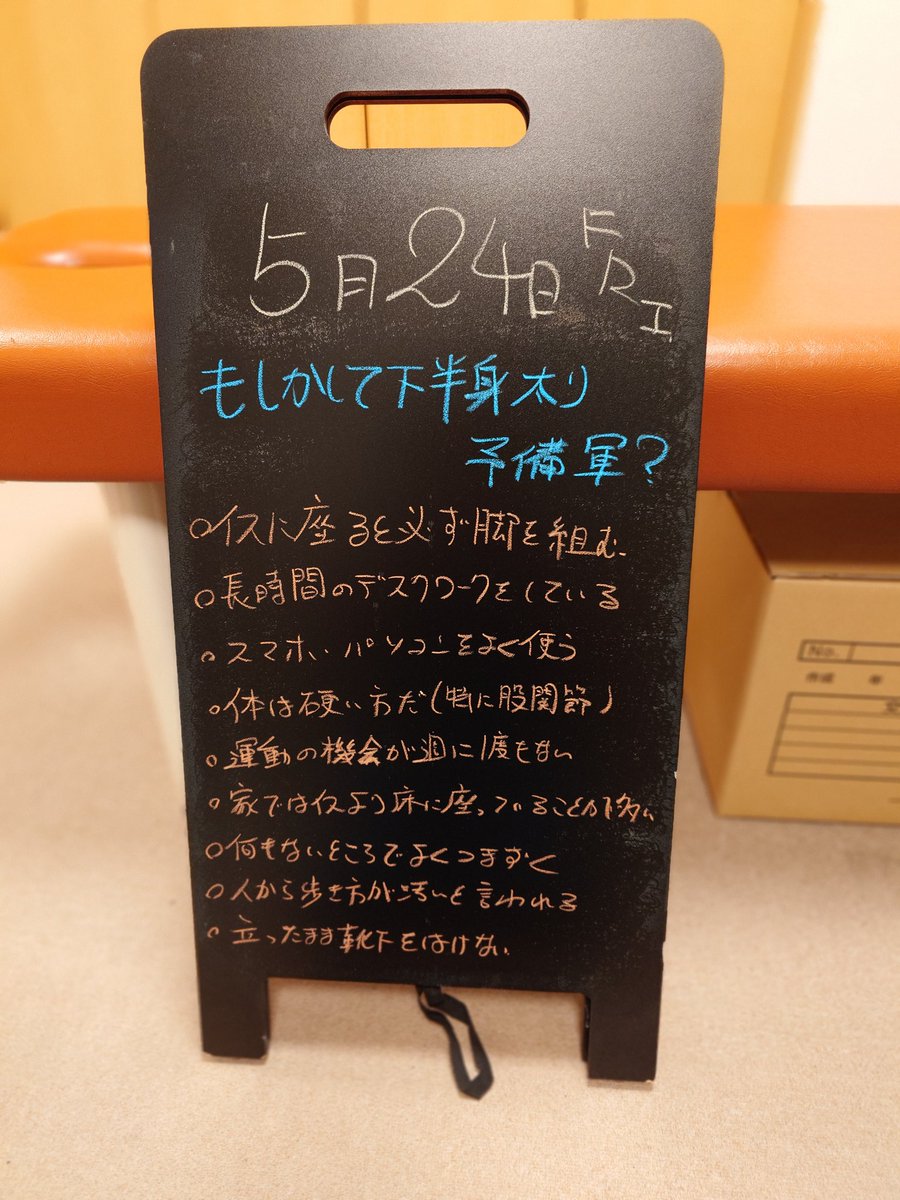 5月24日 FRI
もしかして下半身太り
予備軍?
○イスに座ると必ず脚を組む
○長時間のデスクワークをしている
○スマホ・パソコンをよく使う
○体は硬い方だ(特に股関節)
○運動の機会が週に1度もない
○家ではイスより床に座っていることが多い
○何もないところでよくつまずく
○人から歩き方が汚いと言われる
○立ったまま靴下をはけない
No.